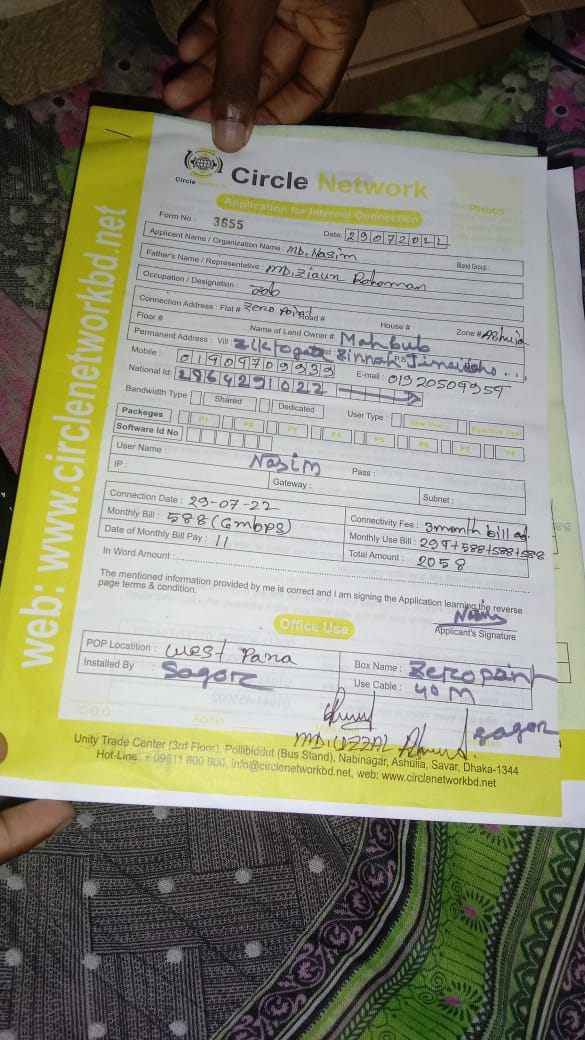 web: www.circlenetworkbd.net
Circle Network
Circle Network
Application for Internet Connection
Photo
Form No : 3655
Date: 29072022
Applicant Name / Organization Name : MD. Nasim
Blood Group
Father's Name / Representative : MD. Ziaur Rohoman
Occupation / Designation : Job
Connection Address : Flat # Zero Point Road # House # Zone # Ashulia
Floor # Name of Land Owner # Mahbub
Permanent Address : Vill : P.S
Mobile : 01909709939 E-mail : 01920509959
National Id: 2864291022
Bandwidth Type Shared Dedicated User Type : New User Reactive User
Packeges P1 P2 P3 P4 P5 P6 P7 P8
Software Id No
User Name : Nasim Pass :
IP : Gateway : Subnet :
Connection Date : 29-07-22 Connectivity Fee : 3 month bill ad.
Monthly Bill : 588 (6mbps) Monthly Use Bill : 294+588+588+588
Date of Monthly Bill Pay : 11 Total Amount : 2058
In Word Amount :
The mentioned information provided by me is correct and I am signing the Application learning the reverse
page terms & condition.
Applicant's Signature
Office Use
POP Locatition : West Para Box Name : Zero point
Installed By : Sagor Use Cable : 40 M
sagor
C.O.O Admin
Unity Trade Center (3rd Floor), Pollibiddut (Bus Stand), Nabinagar, Ashulia, Savar, Dhaka-1344
Hot-Line: +09611 800 900, info@circlenetworkbd.net, web: www.circlenetworkbd.net